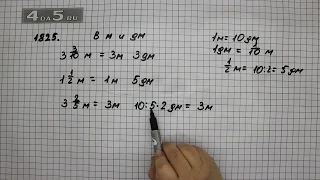 4DA5.RU
1825. В м и дм
3 3/10 м = 3м 3дм
1 1/2 м = 1м 5дм
3 2/5 м = 3м 10:5·2дм = 3м
1м = 10дм
1дм = 1/10 м
1/2 м = 10:2 = 5дм